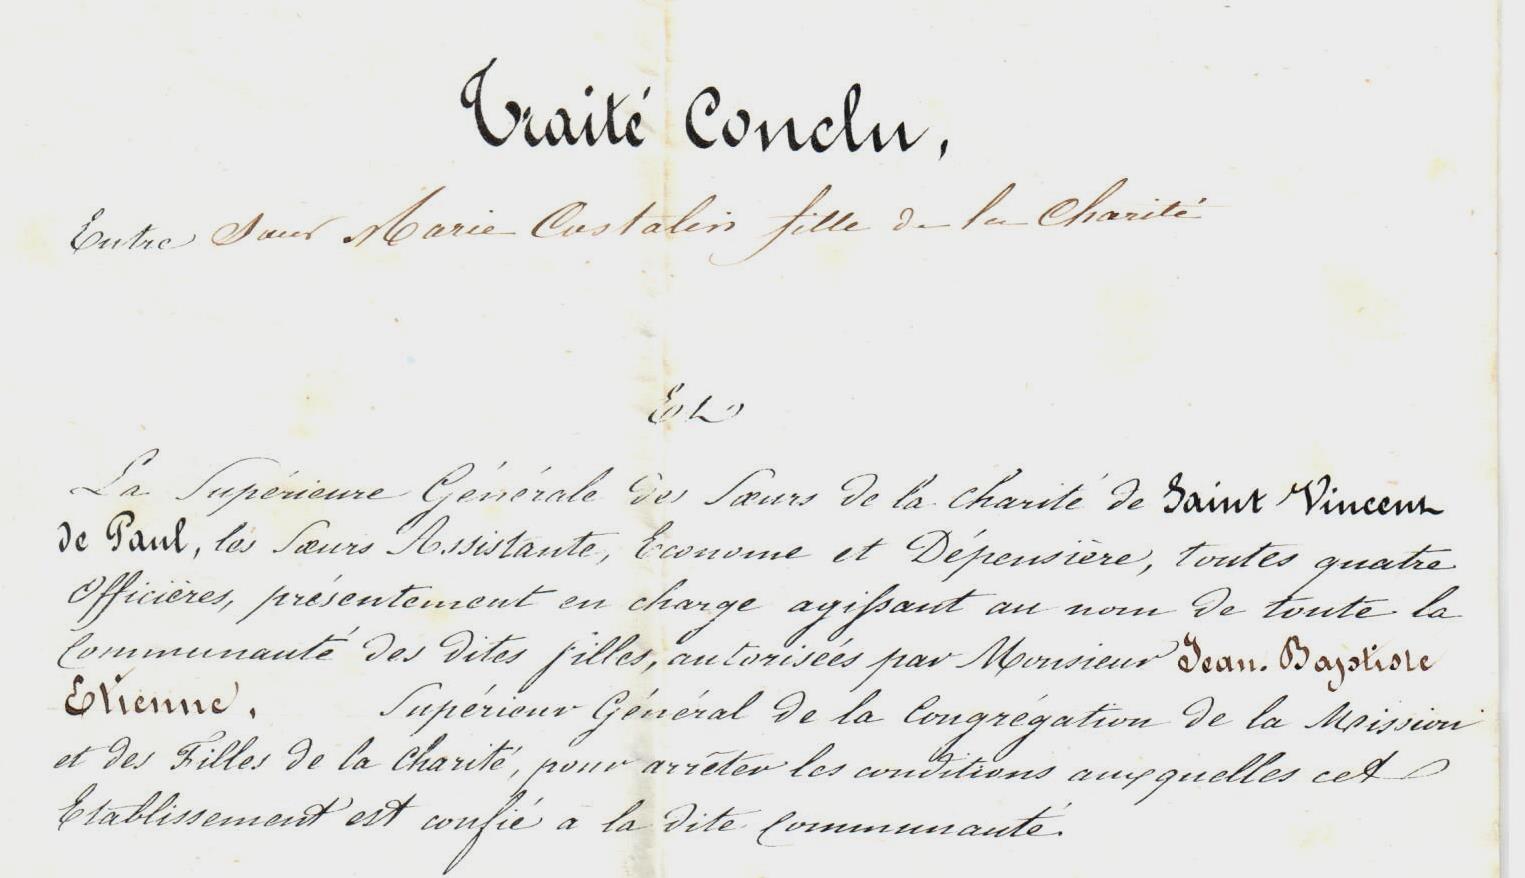 Traité Conclu,
Entre Sœur Marie Costalin fille de la Charité
Et
La Supérieure Générale des Sœurs de la Charité de Saint Vincent
de Paul, les Sœurs Assistante, Econome et Dépensière, toutes quatre
Officières, présentement en charge agissant au nom de toute la
Communauté des dites filles, autorisées par Monsieur Jean-Baptiste
Etienne, Supérieur Général de la Congrégation de la Mission
et des Filles de la Charité, pour arrêter les conditions auxquelles cet
Etablissement est confié à la dite Communauté.